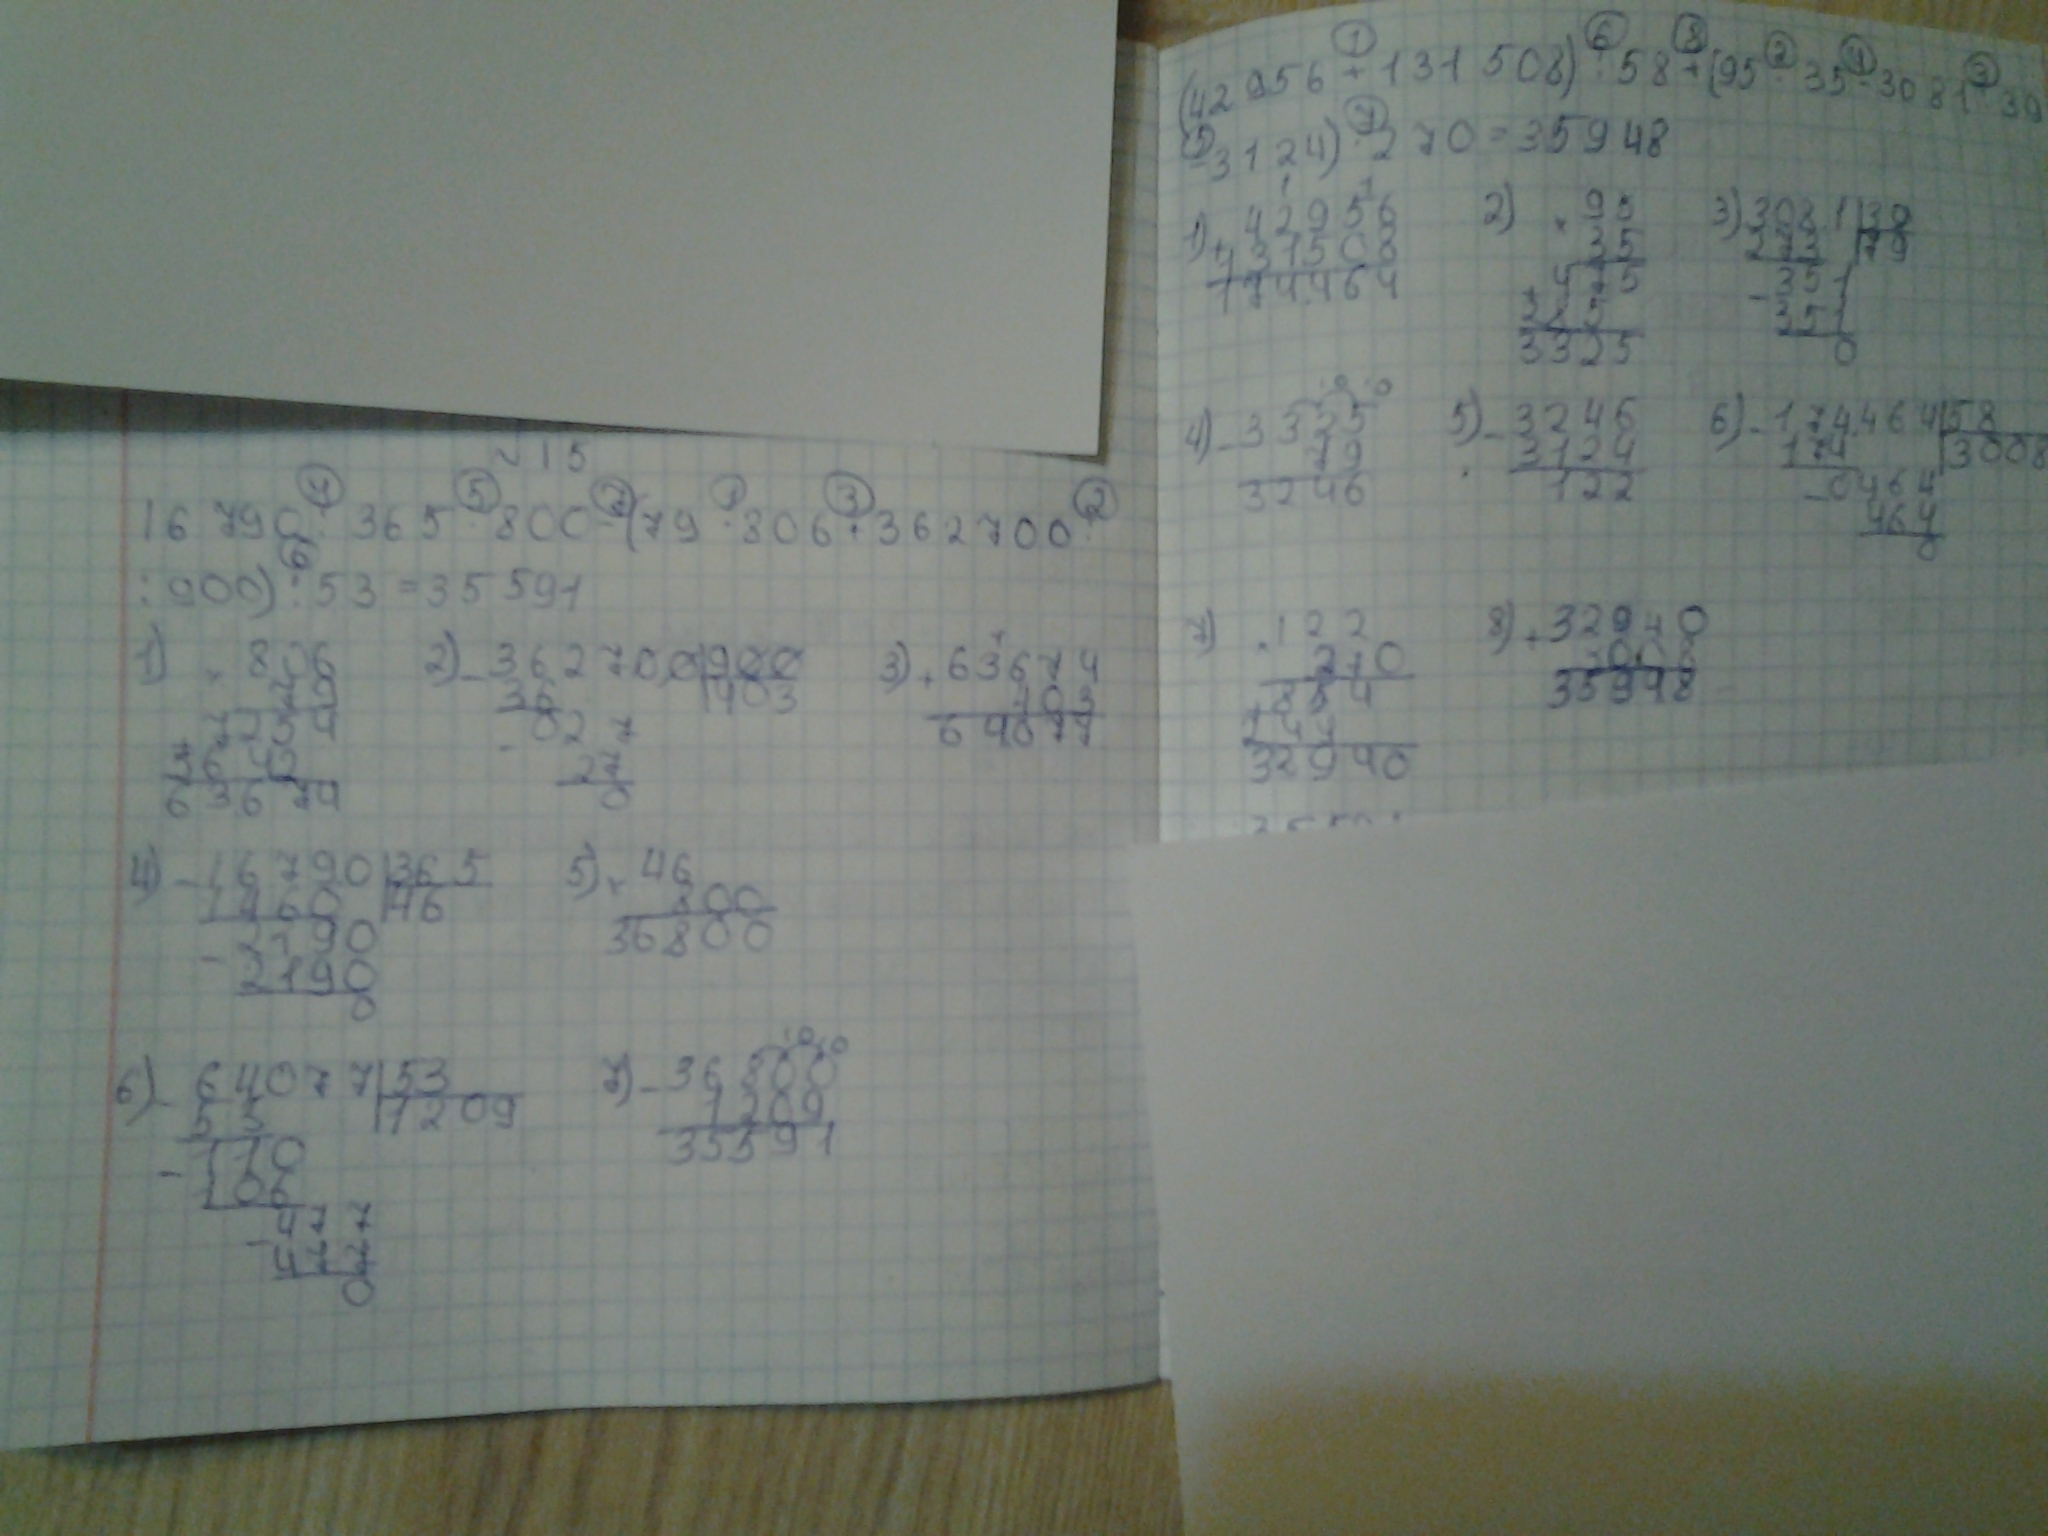 №15
16 790 : 365 · 800 - (79 · 806 + 362700 :
: 900) : 53 = 35 591
1) × 806
79
7254
+ 5642
63674
2) - 362700 | 900
36 | 403
- 027
27
0
3) + 63674
403
64077
4) - 16790 | 365
1460 | 46
- 2190
2190
0
5) × 46
800
36800
6) - 64077 | 53
53 | 1209
- 110
106
- 477
477
0
7) - 36800
1209
35591
(42956 + 131 508) : 58 + (95 · 35 - 3081 : 39
- 3124) · 270 = 35948
1) + 42956
131508
174464
2) × 95
35
+ 475
285
3325
3) 3081 | 39
273 | 79
- 351
351
0
4) - 3325
79
3246
5) - 3246
3124
122
6) - 174464 | 58
174 | 3008
- 0464
464
0
7) × 122
270
+ 854
244
32940
8) + 32940
3008
35948